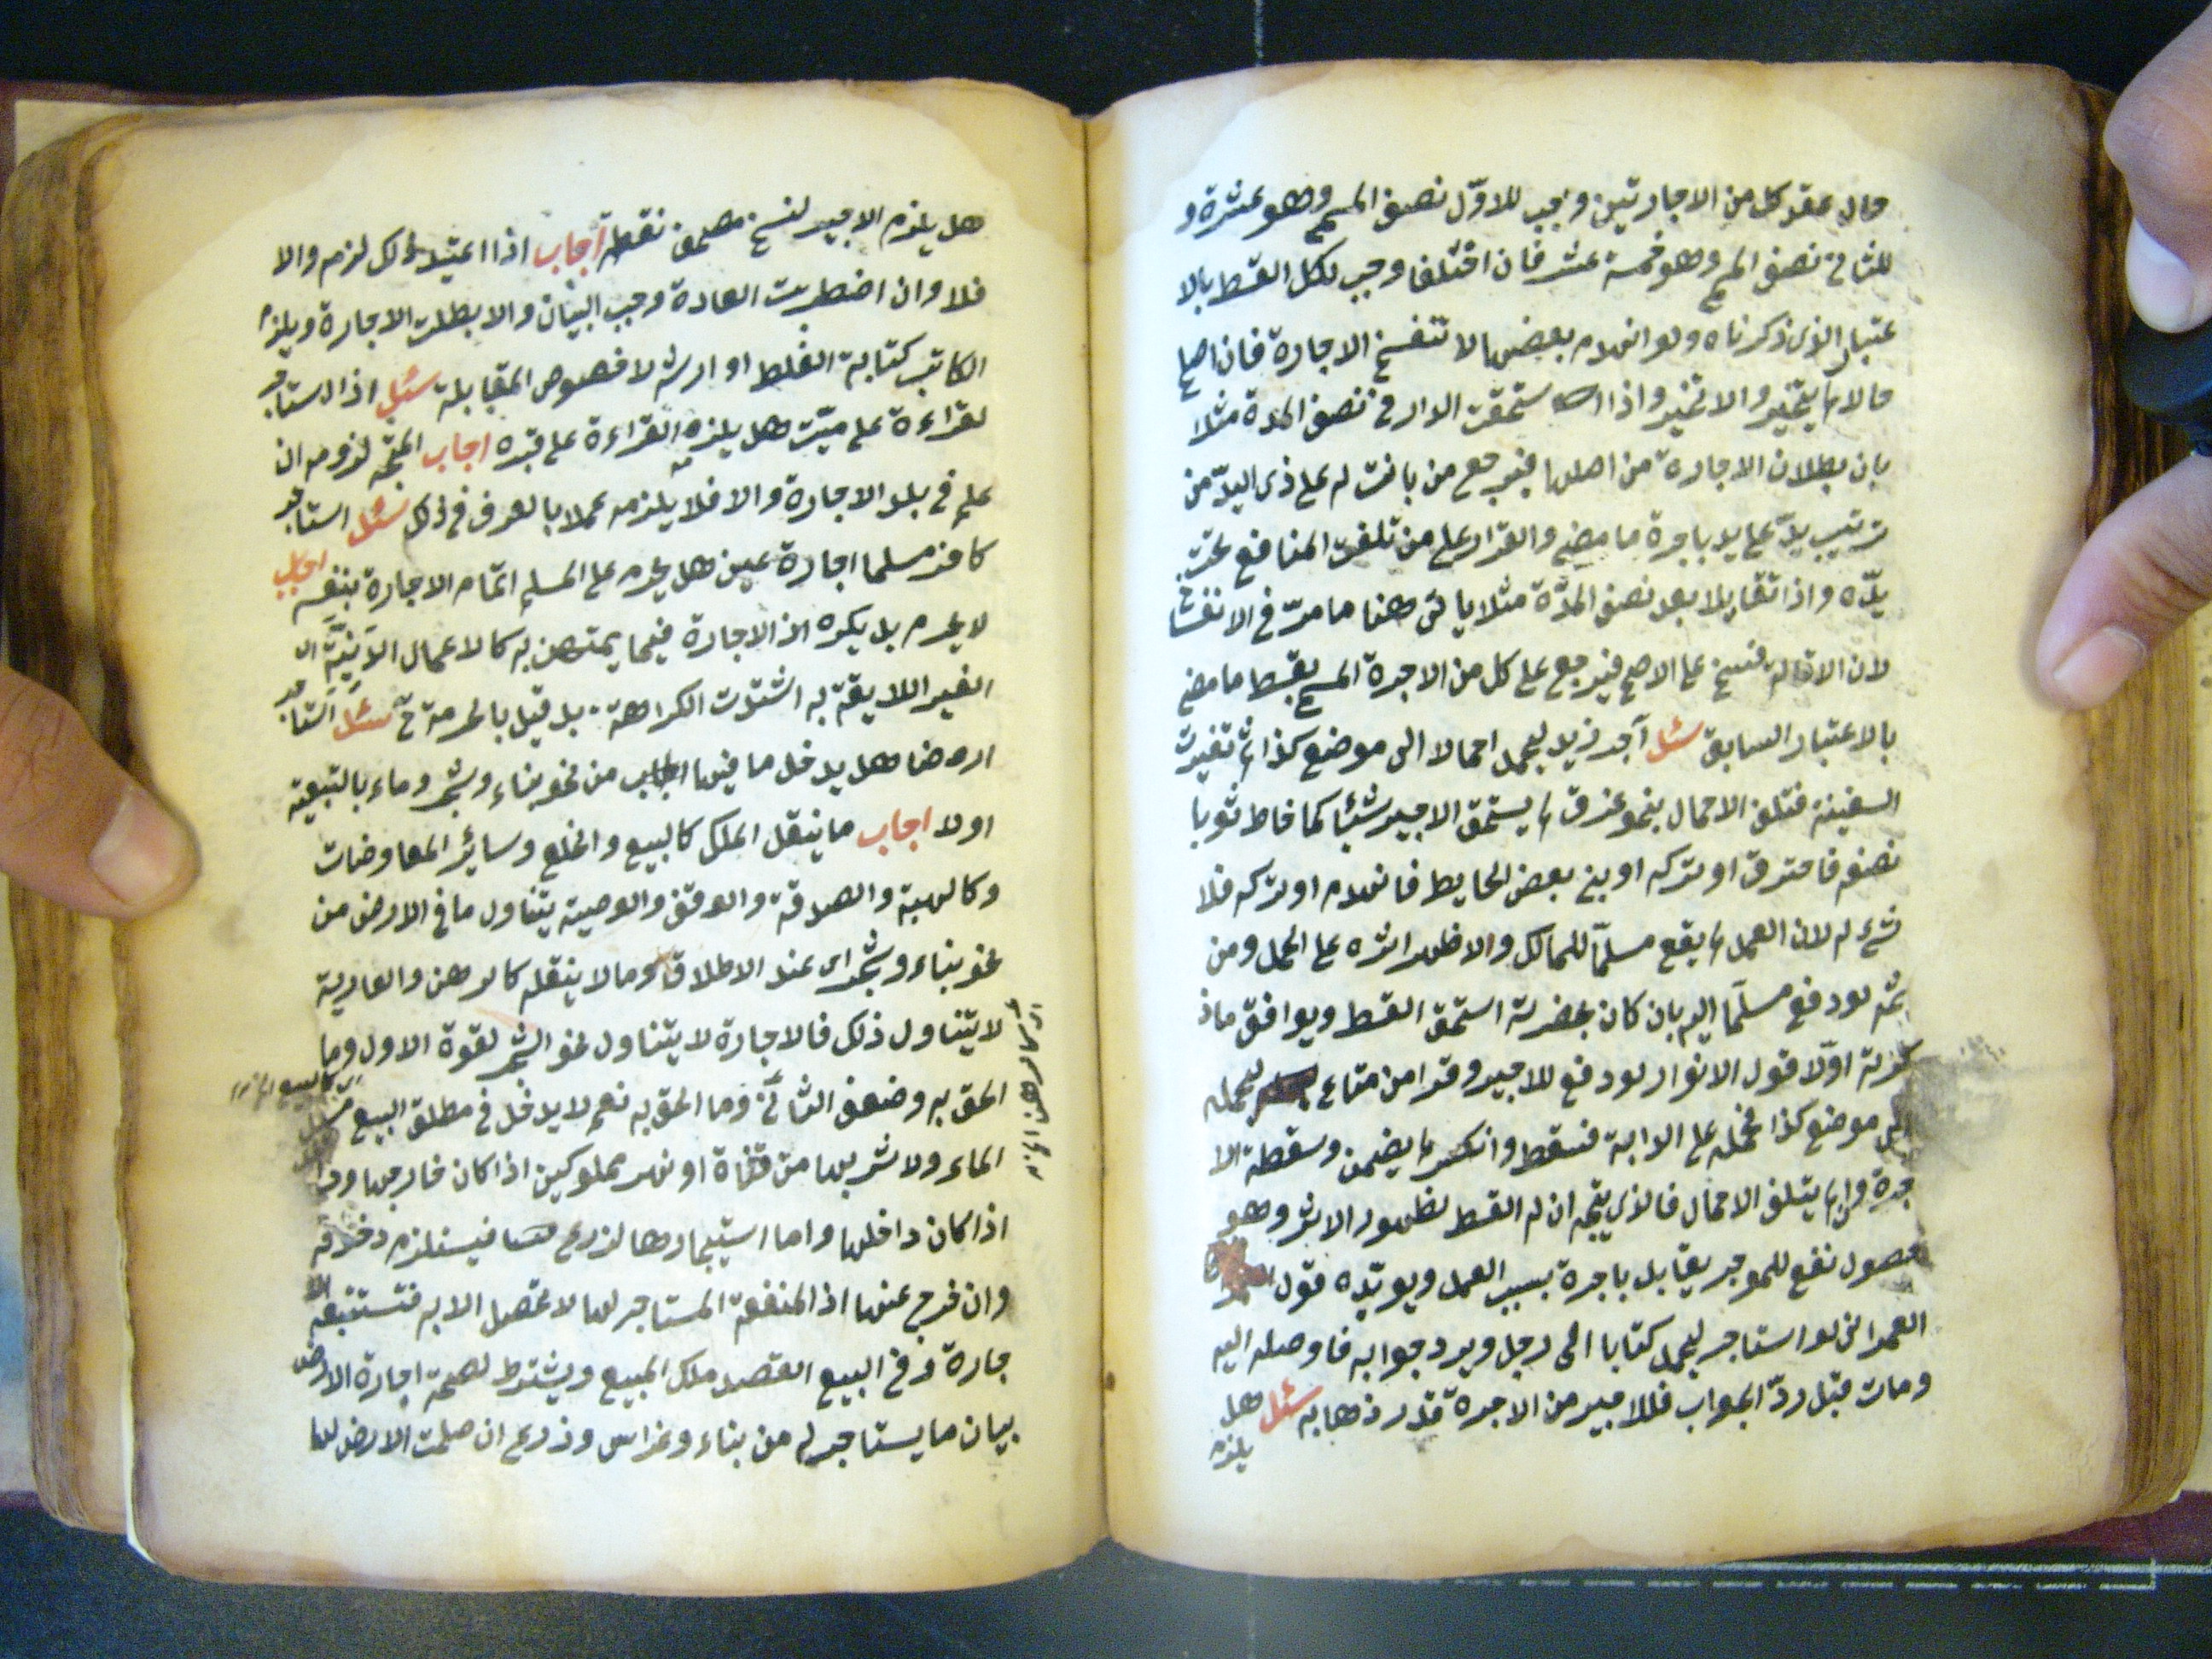 حال عقد كل من الاجارتين وجب للاوّل نصف المسمى وهو عشرة و
للثانى نصف المسمى وهو خمسة عشر فان اختلفا وجب لكل القسط بالا
عتبار الذى ذكرناه ولو انهدم بعضها لا تنفسخ الاجارة فان اصلح
حالا لم يتخير والا تخير واذا استحقت الدار فى نصف المدة مثلا
بان بطلان الاجارة من اصلها فيرجع من بانت له على ذى اليد من
ترتيب يد على يد باجرة ما مضى والقرار على من تلفت المنافع تحت
يدّه واذا تقايلا بعد نصف المدّة مثلا ياتى هنا ما مرّ فى الانفسا
لان الاقالة فسخ على الاصح فيرجع على كل من الاجرة المسمى بقسط ما مضى
بالاعتبار السابق سئل آجر زيد ليحمل احمالا الى موضع كذا ثم تغيرت
السفينة فتلف الاحمال بنحو غرق لم يستحق الاجير شيئا كما خاط ثوبا
نصفه فاحترق او تركه او بنى بعض الحايط فانهدم او تركه فلا
شئ له لان العمل لم يقع مسلّما للمالك والا ظهر اثره على المحل ومن
ثمّ لو دفع مسلّما اليه بان كان بحضرته استحق القسط ويوافق ماذ
كرته اوّلا قول الانوار لو دفع للاجير وقرا من متاع ليحمله
الى موضع كذا فحمله على الدابة فسقط وانكسر لم يضمن وسقطة الا
جرة وان لم يتلف الاحمال فالذى يتجه ان له القسط لظهور الاثر وهو
حصول نفع للموجر يقابل باجرة بسبب العمل ويويّده قول
العمرانى لو استاجر ليحمل كتابا الى رجل ويرد جوابه فاوصله اليه
ومات قبل ردّ الجواب فللاجير من الاجرة قدر ذهابه سئل هل
يلزم
هل يلزم الاجير لنسخ مصحف نقطه اجاب اذا اعتيد ذلك لزم والا
فلا وان اضطربت العادة وجب البيان والا بطلت الاجارة ويلزم
الكاتب كتابة الغلط او ارشه لا خصوص المقابلة سئل اذا استاجر
لقراءة على ميّت هل يلزمه القراءة على قبره اجاب المتجه لزومه ان
علم فى بلد الاجارة والا فلا يلزمه عملا بالعرف فى ذلك سئل استاجر
كافر مسلما اجارة عين هل يحرم على المسلم اتمام الاجارة بنفسه اجاب
لا يحرم بل يكره اذ الاجارة فيما يمتهن به كالاعمال الدنيّة
الغير اللايقة به اشتدت الكراهة بل قيل بالحرمة ح سئل استاجر
ارضا هل يدخل ما فيها من نحو بناء وشجر وماء بالتبعية
اولا اجاب ما ينقل الملك كالبيع والخلع وسائر المعاوضات
وكالهبة والصدقة والوقف والوصية يتناول ما فى الارض من
نحو بناء وشجر اى عند الاطلاق وما لا ينقله كالرهن والعارية
لا يتناول ذلك فالاجارة لا يتناول نحو الشجر لقوة الاول وما
الحق به وضعف الثانى وما الحق به نعم لا يدخل فى مطلق البيع مسيل
الماء ولا شربها من قناة او نهر مملوكين اذا كان خارجها
اذا كان داخلها واما استيجارها لزرع فيستلزم دخوله
وان خرج عنها اذ المنفعة المستاجر لها لا تحصل الا به فتستتبعه الا
جارة وفى البيع القصد ملك المبيع ويشترط لصحة اجارة الارض
بيان ما يستاجر له من بناء وغراس وزرع ان صلحت الارض لها